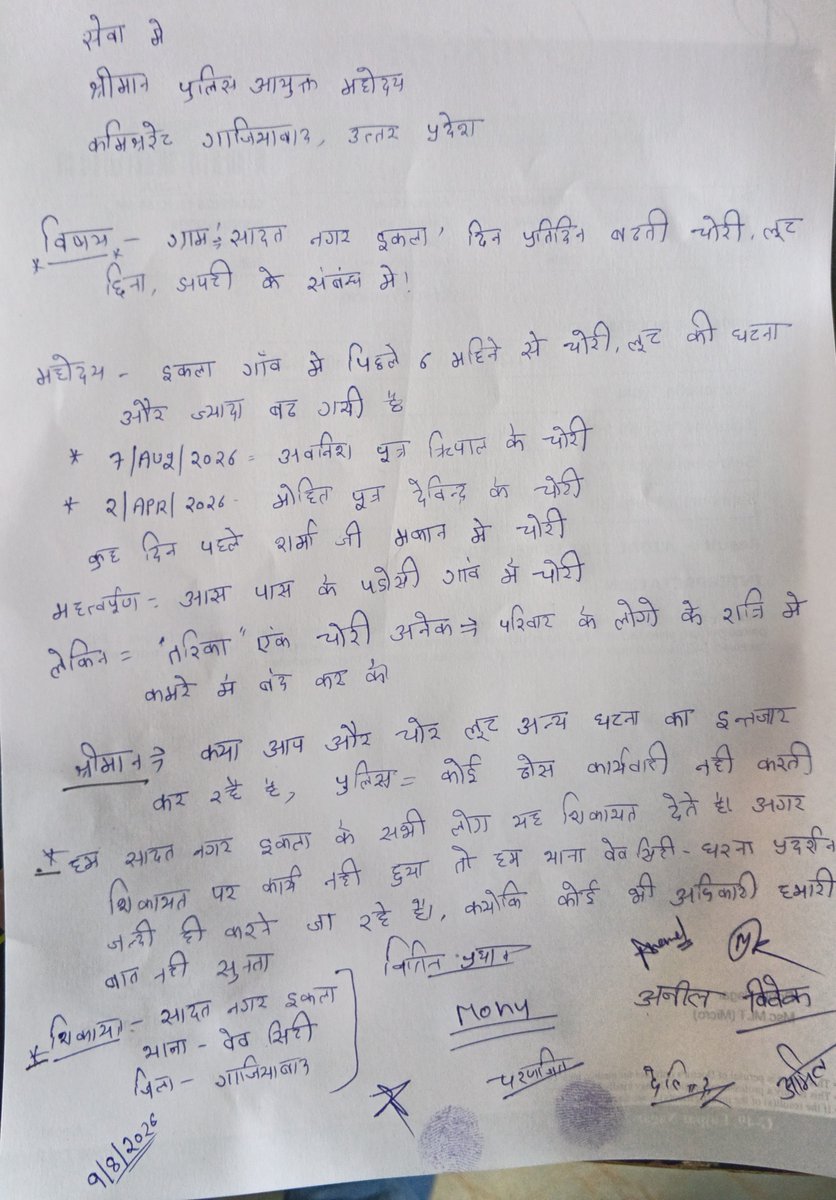 सेवा मे
श्रीमान पुलिस आयुक्त महोदय
कमिश्नरेट गाजियाबाद, उत्तर प्रदेश
विषय - ग्राम सादत नगर इकला' दिन प्रतिदिन बढती चोरी, लूट
छिना, झपटी के संबंध मे!
महोदय - इकला गाँव मे पिछले 6 महिने से चोरी, लूट की घटना
और ज्यादा बढ गयी है
* 7/AUG/2026 = अवनिश पुत्र के चोरी
* 2/APR/2026 - मोहित पुत्र देविन्द्र के चोरी
कुछ दिन पहले शर्मा जी मकान मे चोरी
महत्वपूर्ण - आस पास के पडोसी गांव में चोरी
लेकिन = "तरिका" एक चोरी अनेक ⇒ परिवार के लोगो के रात्रि मे
कमरे में बंद कर के
श्रीमान ⇒ क्या आप और चोर लूट अन्य घटना का इन्तजार
कर रहे है, पुलिस = कोई ठोस कार्यवाही नही करती
* हम सादत नगर इकला के सभी लोग यह शिकायत देते है। अगर
शिकायत पर कार्य नही हुया तो हम थाना वेव सिटी - धरना प्रदर्शन
जल्दी ही करने जा रहे है।, क्योकि कोई भी अधिकारी हमारी
बात नही सुनता
* शिकायत - सादत नगर इकला
थाना - वेव सिटी
जिला - गाजियाबाद
9/8/2026
Mony
अनील विवेक
अमित